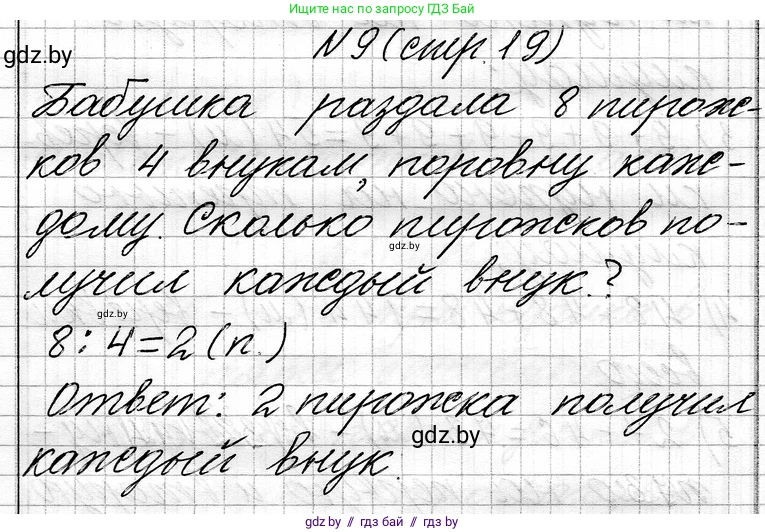 Ищите нас по запросу ГДЗ Бай
gdz.by
N 9 (стр. 19)
Бабушка раздала 8 пирож-
ков 4 внукам, поровну каж-
дому. Сколько пирожков по-
gdz.by
лучил каждый внук?
gdz.by
8 : 4 = 2 (п.)
Ответ: 2 пирожка получил
gdz.by
каждый внук.
gdz.by // гдз бай // gdz.by